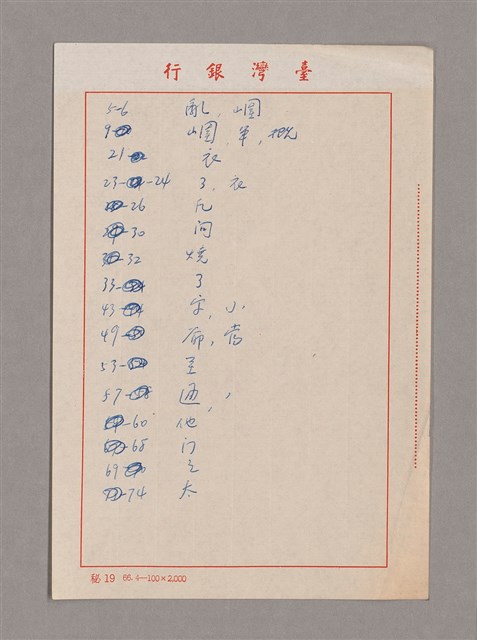 行銀灣臺
5-6 亂，嶇
9- 嶇，單，概
21- 衣
23- -24 了，衣
-26 凡
-30 问
-32 燒
33- 了
43- 字，小
49- 命，當
53- 至
57- 通，，
-60 他
-68 门
69- 之
-74 太
秘19 66.4—100×2,000